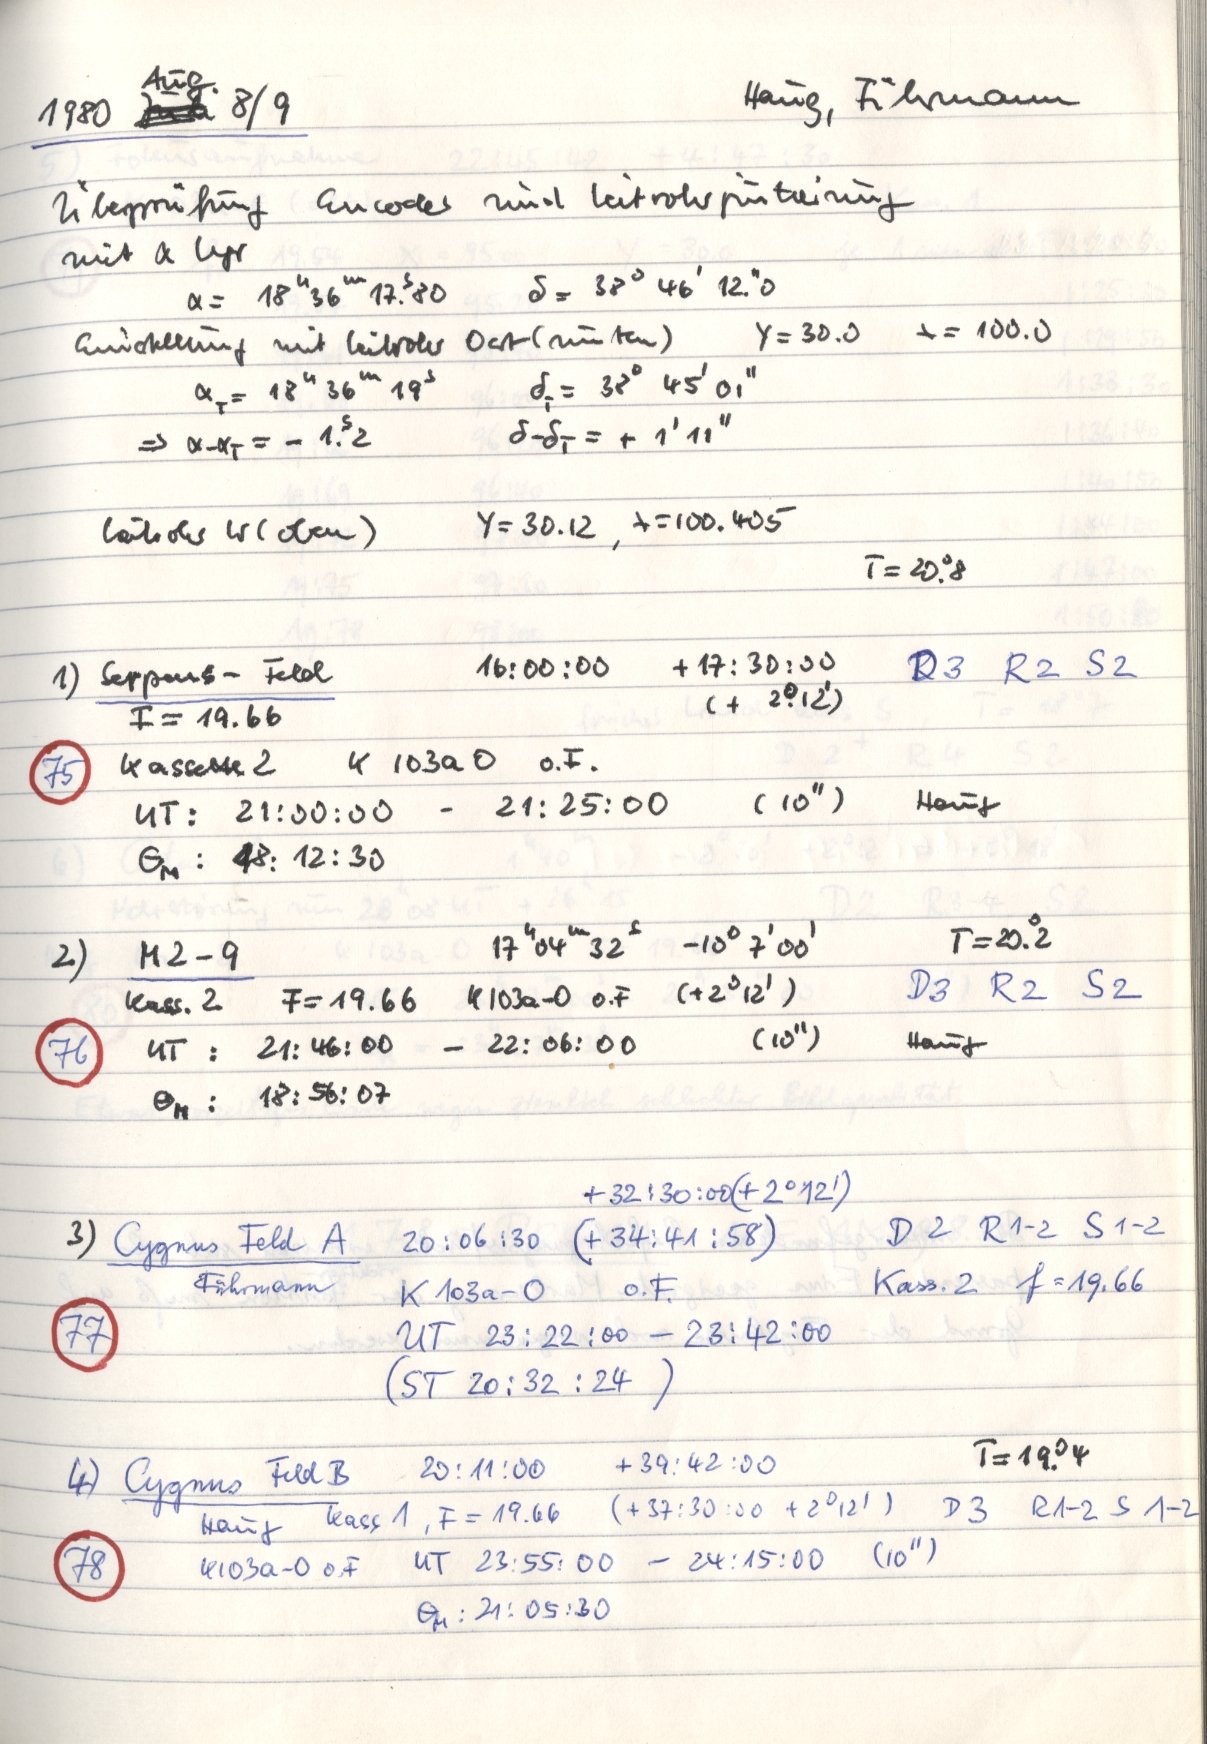 1980 Aug. 8/9 Haug, Führmann
Überprüfung Encoder und Leitrohrjustierung
mit α Lyr
α = 18ʰ 36ᵐ 17.ˢ80 δ = 38° 46' 12."0
Einstellung mit Leitrohr Ost (unten) Y = 30.0 X = 100.0
α_T = 18ʰ 36ᵐ 19ˢ δ_T = 38° 45' 01"
⇒ α-α_T = - 1.ˢ2 δ-δ_T = + 1' 11"
Leitrohr W (oben) Y = 30.12, X = 100.405
T = 20.°8
1) Serpens - Feld 16:00:00 +17:30:00 D3 R2 S2
F = 19.66 (+ 2°12')
75 Kassette 2 K 103a O o.F.
UT: 21:00:00 - 21:25:00 (10") Haug
Θ_M : 18:12:30
2) M2-9 17ʰ04ᵐ32ˢ -10° 7'00' T=20.°2
Kass. 2 F = 19.66 K103a-O o.F (+2°12') D3 R2 S2
76 UT : 21:46:00 - 22:06:00 (10") Haug
Θ_M : 18:56:07
+32:30:00(+2°12')
3) Cygnus Feld A 20:06:30 (+34:41:58) D2 R1-2 S1-2
Führmann K 103a-O o.F. Kass. 2 f = 19.66
77 UT 23:22:00 - 23:42:00
(ST 20:32:24 )
4) Cygnus Feld B 20:11:00 +39:42:00 T=19.°4
Haug Kass 1, F = 19.66 (+37:30:00 +2°12') D3 R1-2 S 1-2
78 K103a-O o.F UT 23:55:00 - 24:15:00 (10")
Θ_M : 21:05:30